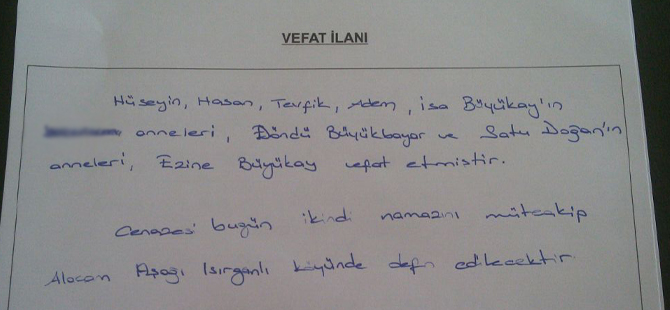 VEFAT İLANI
Hüseyin, Hasan, Tevfik, Adem, İsa Büyükay'ın
anneleri, Döndü Büyükbayar ve Satu Doğan'ın
anneleri, Ezine Büyükay vefat etmiştir.
Cenazesi bugün ikindi namazını müteakip
Alacam Aşağı Isırganlı köyünde defn edilecektir.